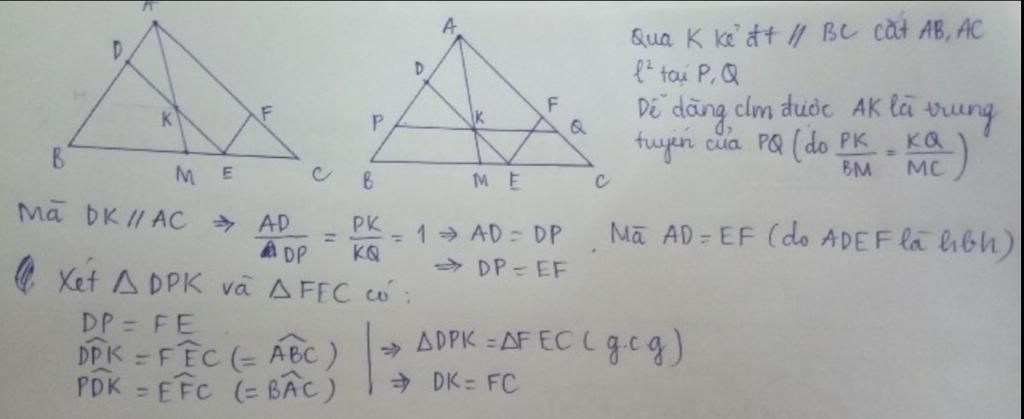 A
D
K
F
B
M
E
C
A
D
P
K
F
Q
B
M
E
C
Qua K kẻ đt // BC cắt AB, AC
l² tại P, Q
Dễ dàng c/m được AK là trung
tuyến của PQ (do PK/BM = KQ/MC)
Mà DK // AC ⇒ AD/DP = PK/KQ = 1 ⇒ AD = DP . Mà AD = EF (do ADEF là hbh)
⇒ DP = EF
Xét △DPK và △FEC có:
DP = FE
D̂PK = FÊC (= ÂBC)
P̂DK = EF̂C (= BÂC)
⇒ △DPK = △FEC (g.c.g)
⇒ DK = FC